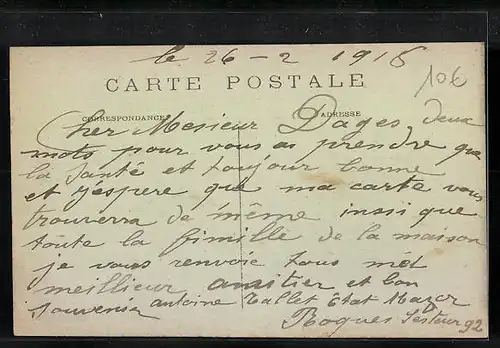 le 26 - 2 1916
CARTE POSTALE
10€
CORRESPONDANCE
ADRESSE
Cher Mesieur Dages deux
mots pour vous as prendre que
la santé et toujour bonne
et j'éspere que ma carte vous
trouverra de même insii que
toute la fimille de la maison
je vous renvoie tous met
meillieur amitier et bon
souvenir antoine Tallet Etat Mazor
Roques Secteur 92